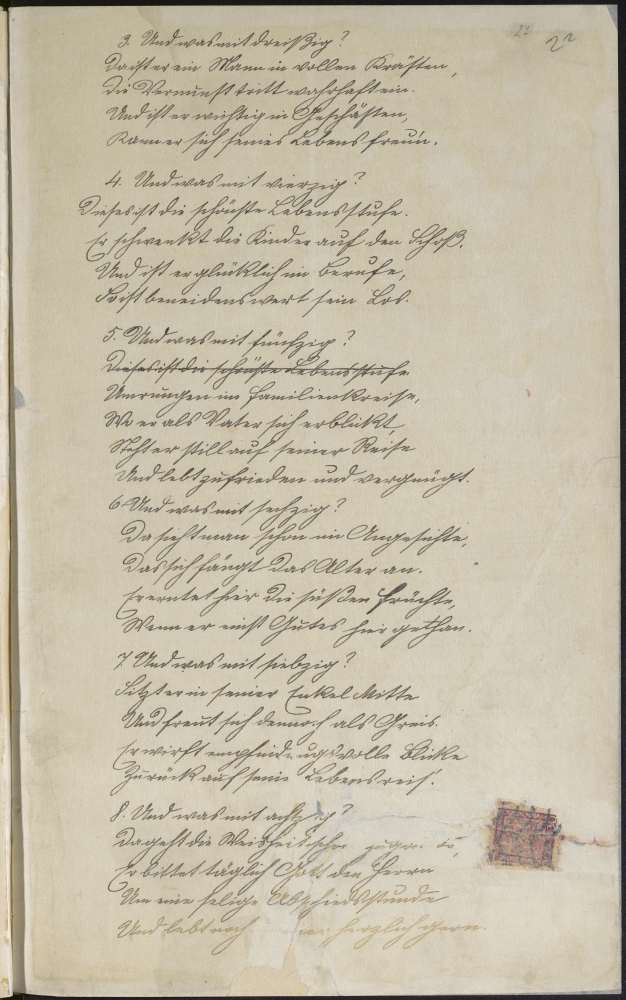 22
3. Und was mit dreißig?
Da ist er ein Mann in vollen Kräften,
Die Vernunft tritt wahrhaft ein.
Und ist er wichtig in Geschäften,
Kann er sich seines Lebens freu'n.
4. Und was mit vierzig?
Dieses ist die schönste Lebensstufe.
Er schwenkt die Kinder auf den Schoß,
Und ist er glücklich im Berufe,
So ist beneidenswert sein Los.
5. Und was mit fünfzig?
Dieses ist die schönste Lebensstufe
Umrungen im Familienkreise,
Wo er als Vater sich erblickt,
Steht er still auf seiner Reise
Und lebt zufrieden und vergnügt.
6 Und was mit sechzig?
Da sieht man schon im Angesichte,
Das sich fängt das Alter an.
Er erntet hier die süßen Früchte,
Wenn er einst Gutes hier gethan.
7. Und was mit siebzig?
Sitzt er in seiner Enkel Mitte
Und freut sich dennoch als Greis.
Er wirft empfindungsvolle Blicke
Zurück auf seine Lebensreis'.
8. Und was mit achtzig?
Da geht die Weisheit schon
Er bittet täglich Gott den Herrn
Um eine selige Abschiedsstunde
Und lebt noch herzlich gern.